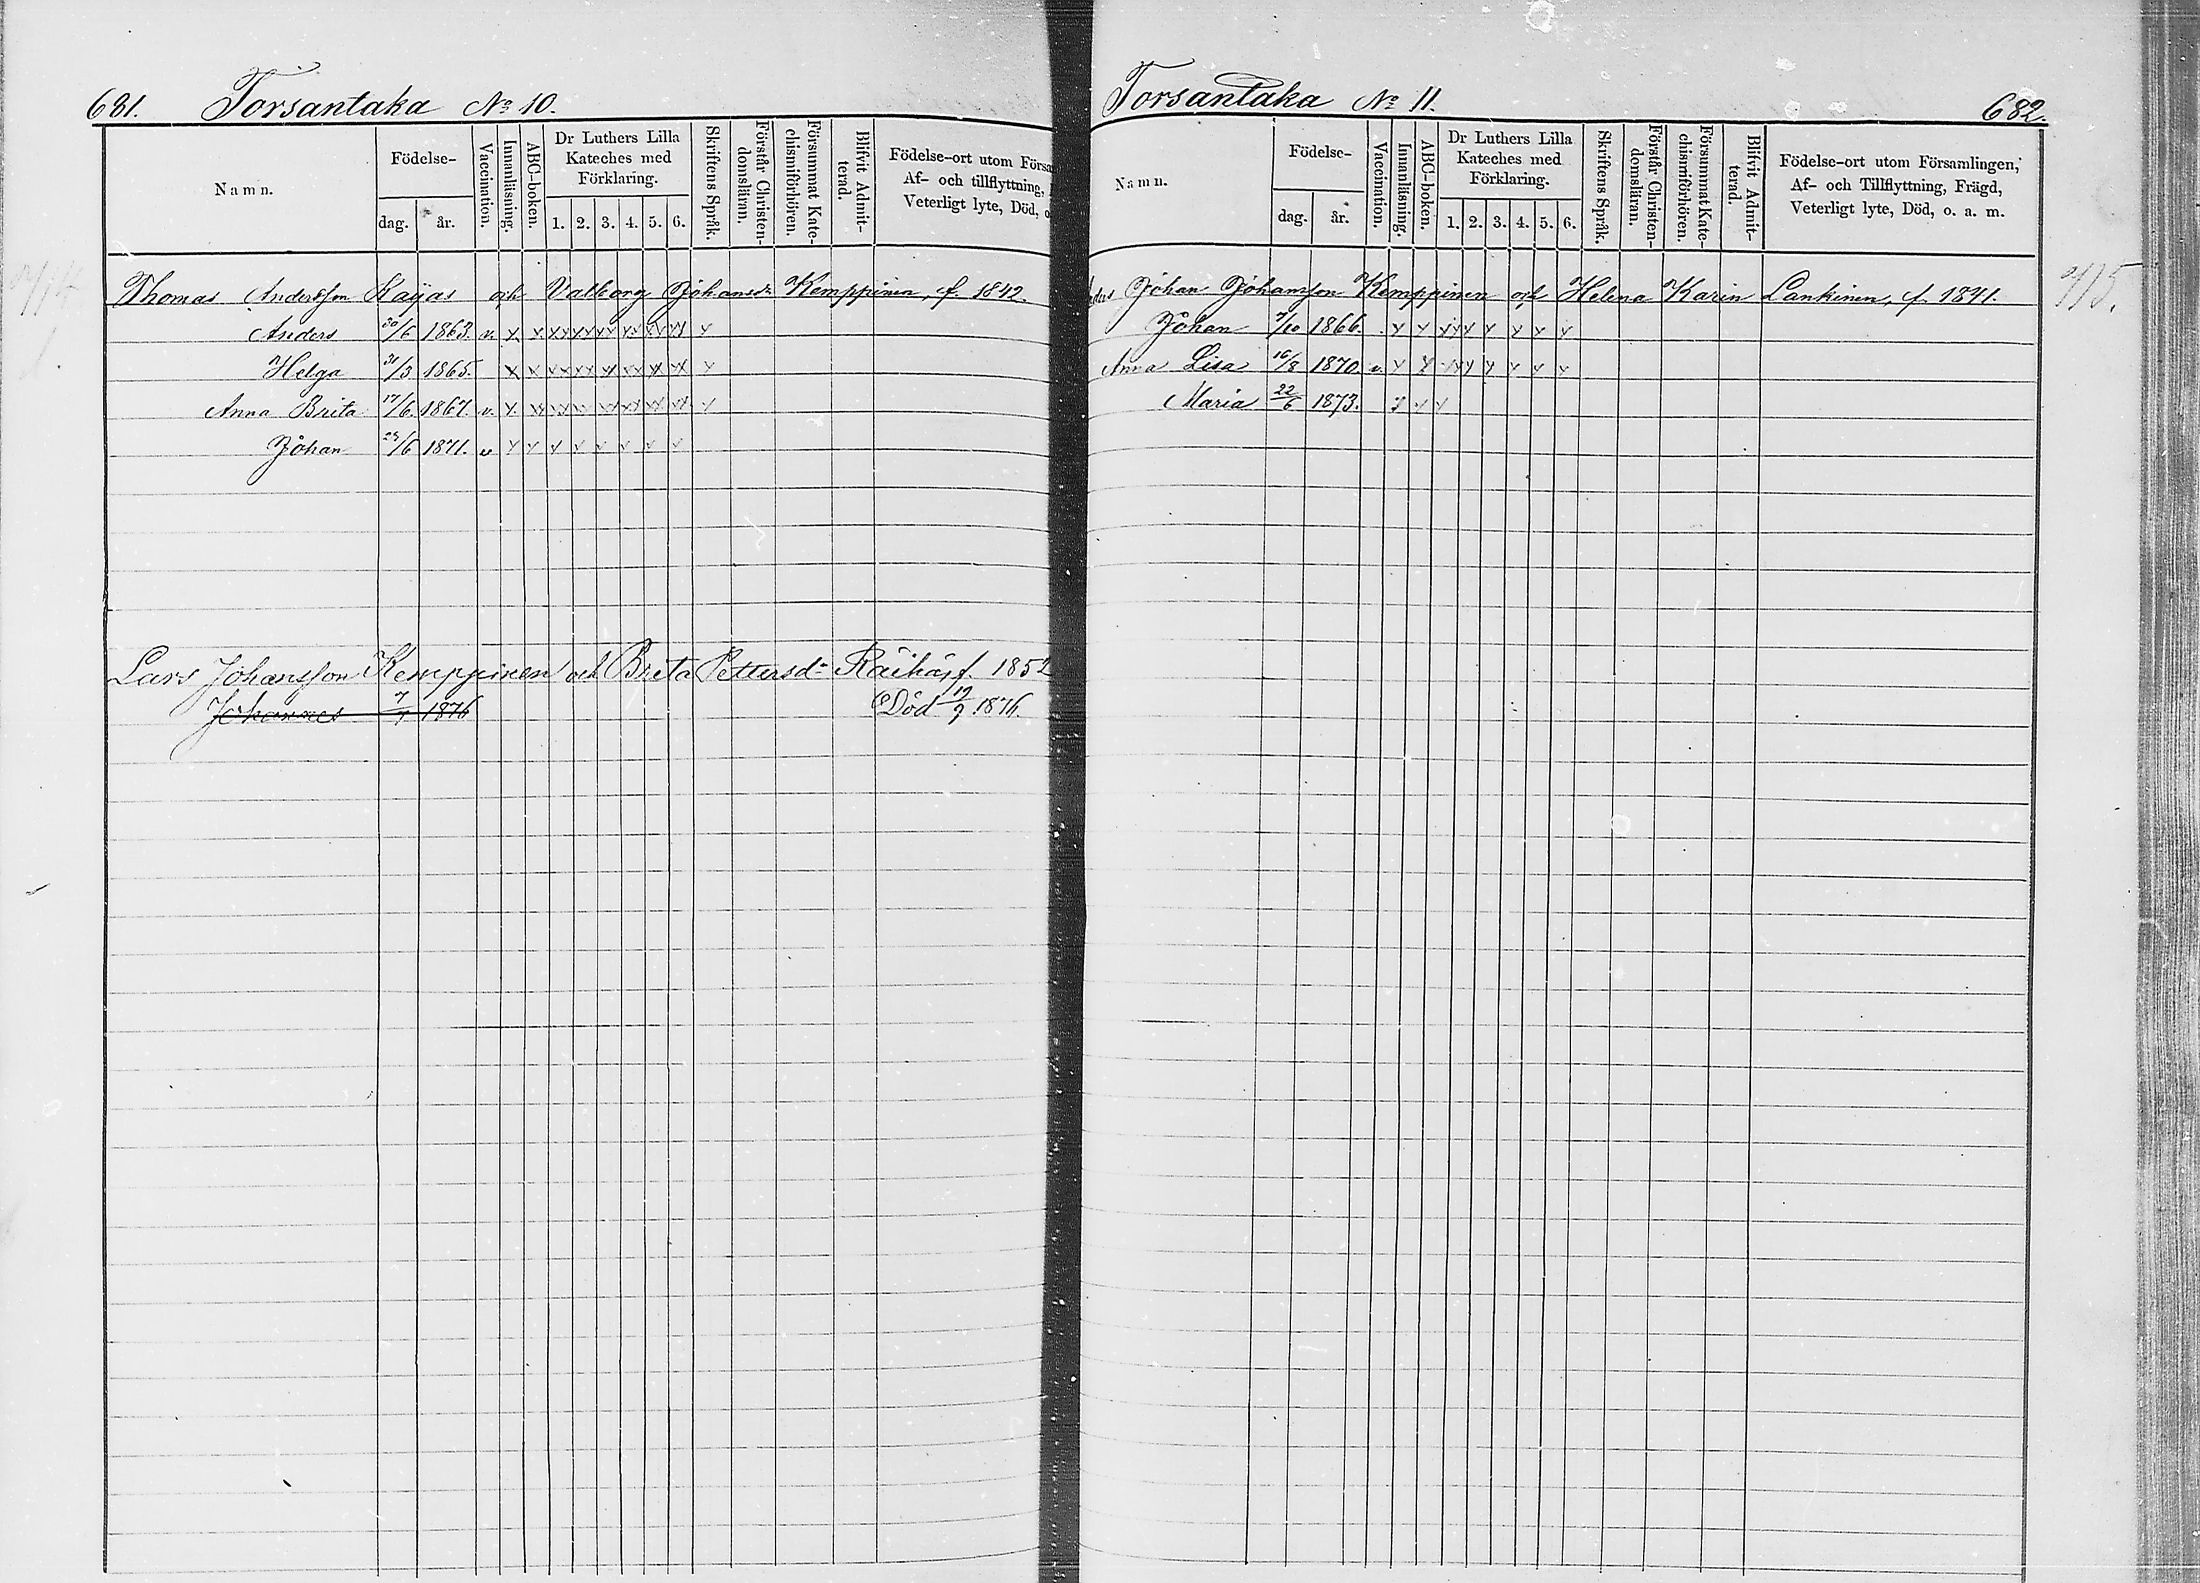 681. Torsantaka No 10.
Namn.
Födelse-
dag. år.
Vaccination.
Innanläsning.
ABC-boken.
Dr Luthers Lilla
Kateches med
Förklaring.
1. 2. 3. 4. 5. 6.
Skriftens Språk.
Förstår Christen-
domsläran.
Försummat Kate-
chismiförhören.
Blifvit Admit-
terad.
Födelse-ort utom Församl
Af- och tillflyttning,
Veterligt lyte, Död, o
Thomas Andersson Rayas och Valborg Johansdr Kemppinen, f. 1842.
Anders 30/6 1863. v. x x xx xx xx xx xx xx x
Helga 31/3 1865. x x xx xx xx xx xx xx x
Anna Brita 17/6 1867. v. x xx xx xx xx xx xx xx x
Johan 27/6 1871. v x x x x x x x x
Lars Johansson Kemppinen och Breta Pettersdr Räihä, f. 1852
Johannes 7/7 1876 Död 19/9 1876.
Torsantaka No 11. 682.
Namn.
Födelse-
dag. år.
Vaccination.
Innanläsning.
ABC-boken.
Dr Luthers Lilla
Kateches med
Förklaring.
1. 2. 3. 4. 5. 6.
Skriftens Språk.
Förstår Christen-
domsläran.
Försummat Kate-
chismiförhören.
Blifvit Admit-
terad.
Födelse-ort utom Församlingen,
Af- och Tillflyttning, Frägd,
Veterligt lyte, Död, o. a. m.
Johan Johansson Kemppinen och Helena Karin Lankinen, f. 1841. 715.
Johan 7/10 1866. x x xx x x x x x
Anna Lisa 16/8 1870. v. x x xx x x x x x
Maria 22/6 1873. x x x